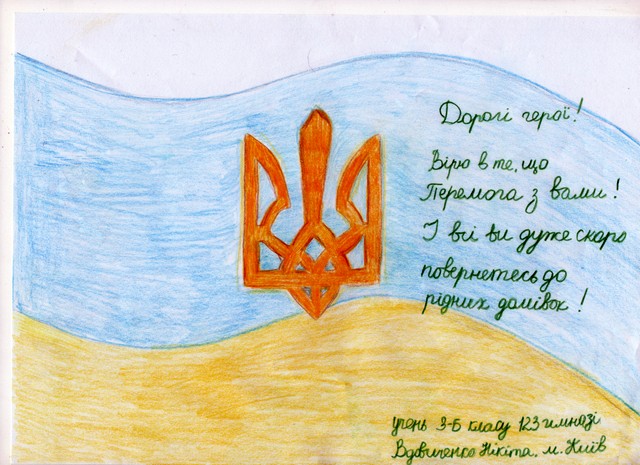 Дорогі герої!
Вірю в те, що
Перемога з вами!
І всі ви дуже скоро
повернетесь до
рідних домівок!
учень 3-Б класу 123 гімназі
Вдовиченко Нікіта, м. Київ